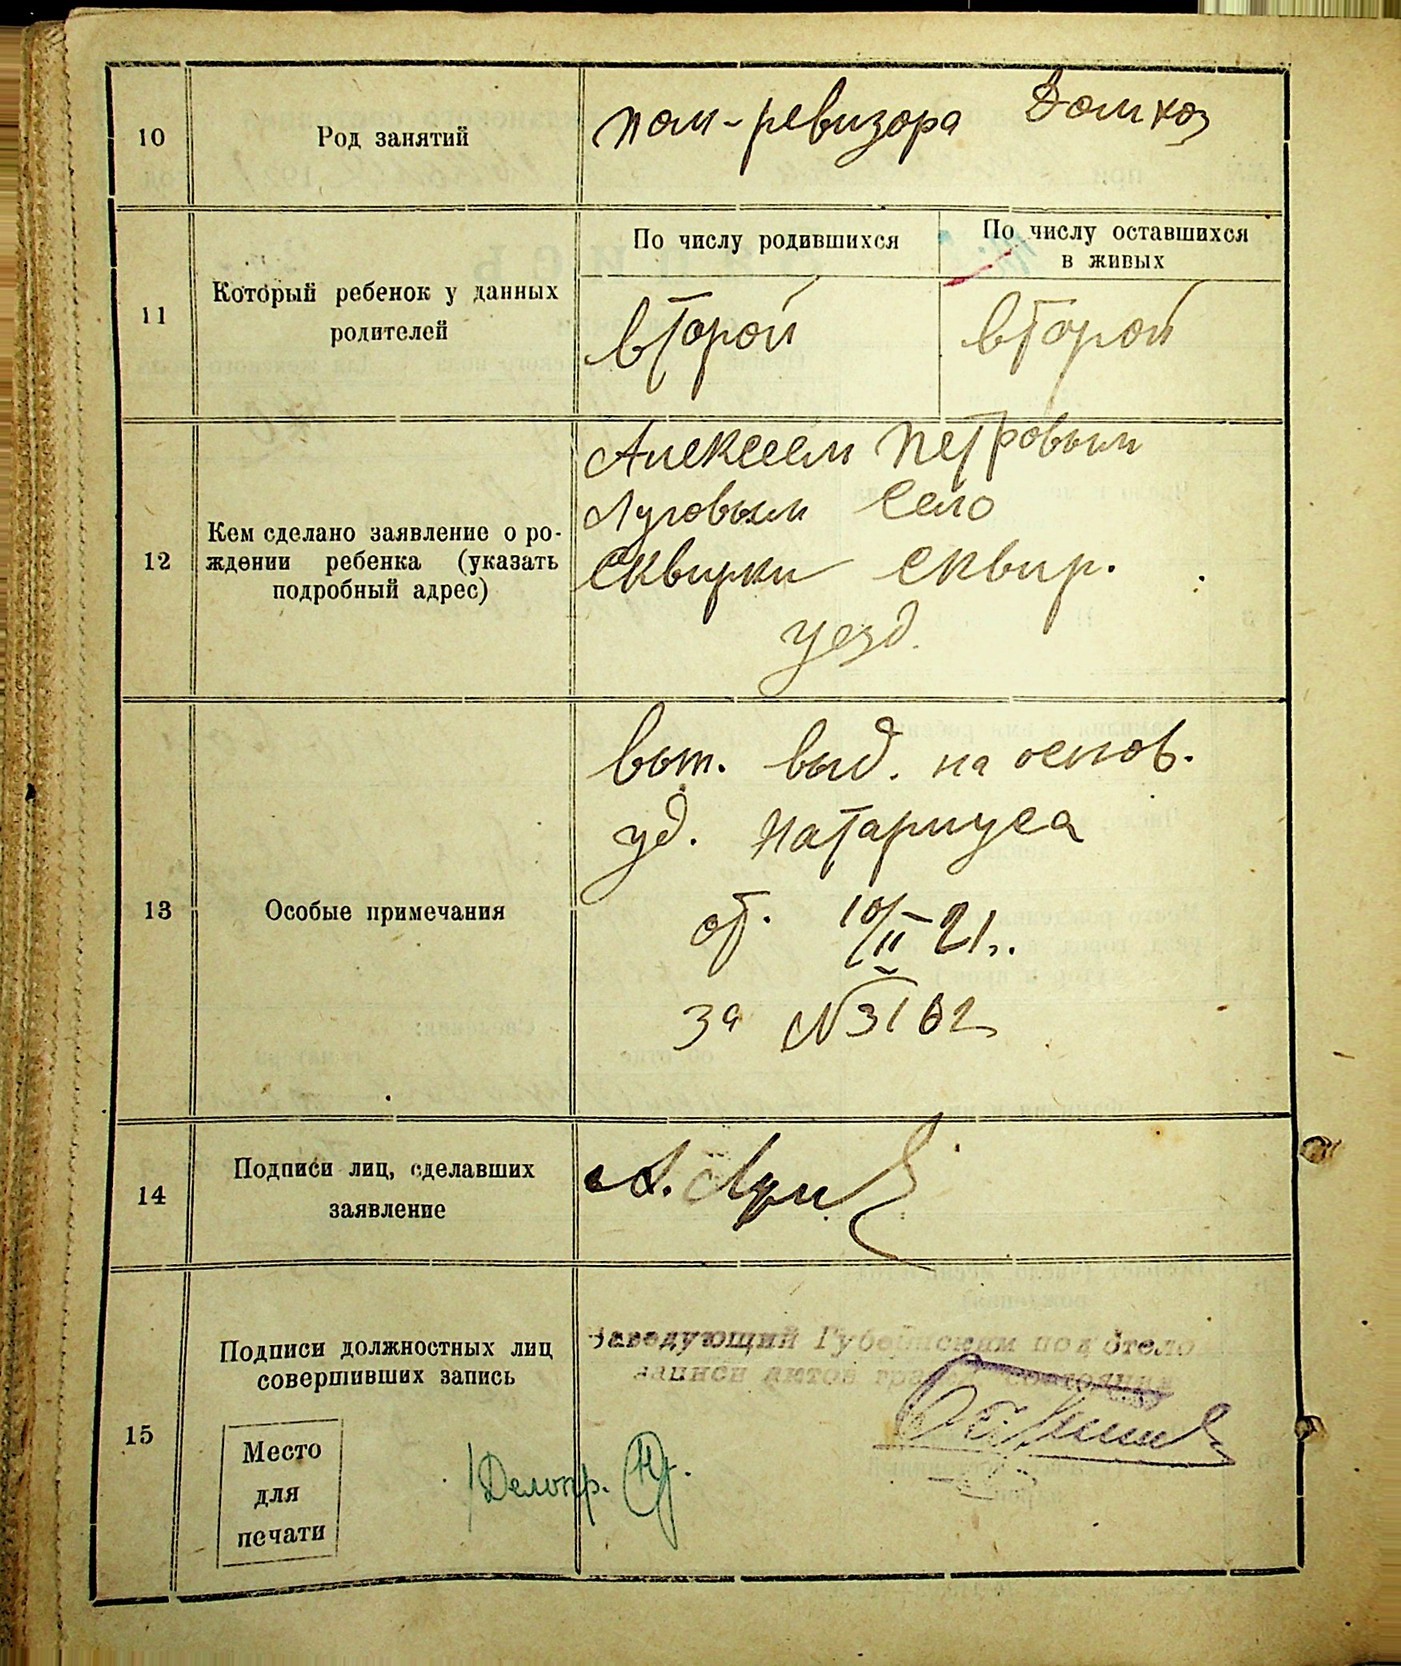 10
Род занятий
пом-ревизора Домхоз
11
Который ребенок у данных
родителей
По числу родившихся
второй
По числу оставшихся
в живых
второй
12
Кем сделано заявление о ро-
ждении ребенка (указать
подробный адрес)
Алексеем Петровым
Луговым село
Сквирки Сквир.
уезд.
13
Особые примечания
вып. выд. на основ.
уд. Натариуса
от. 10/II-21г.
за №3162
14
Подписи лиц, сделавших
заявление
А.
15
Подписи должностных лиц
совершивших запись
Место
для
печати
Заведующий Губернским подотдело
записи актов гражд. состояния
Делопр.